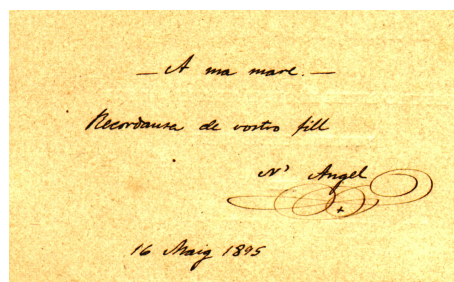 — A ma mare. —
Recordansa de vostro fill
N' Angel
16 Maig 1895